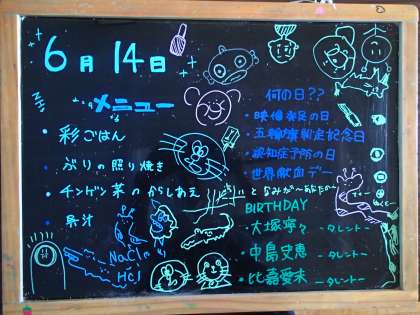 6月14日
メニュー
・彩ごはん
・ぶりの照り焼き
・チンゲン菜のからしあえ
・呉汁
NaCl
HCl
何の日??
・映倫発足の日
・五輪旗制定記念日
・認知症予防の日
・世界献血デー
BIRTHDAY
・大塚寧々 -タレント-
・中島史恵 -タレント-
・比嘉愛未 -タレント-